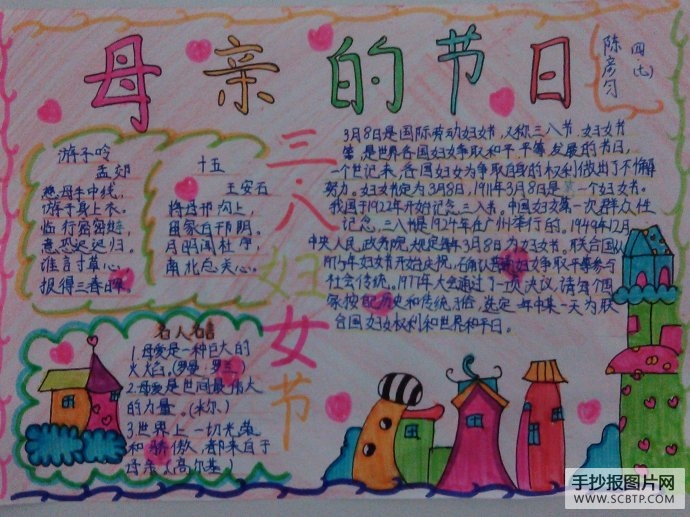 母亲的节日
四(七)
陈彦匀
三·八妇女节
游子吟
孟郊
慈母手中线,
游子身上衣。
临行密密缝,
意恐迟迟归。
谁言寸草心,
报得三春晖。
十五
王安石
将母邗沟上,
留家白邗阴。
月明闻杜宇,
南北总关心。
3月8日是国际劳动妇女节,又称三八节、妇女节
等,是世界各国妇女争取和平、平等、发展的节日,
一个世记来,各国妇女为争取自己的权利做出了不懈
努力。妇女节定为3月8日,1911年3月8日是第一个妇女节。
我国于1922年开始记念三八节。中国妇女第一次群众性
记念三八节是1924年在广州举行的。1949年12月
中央人民政务院规定每年3月8日为妇女节。联合国从
1975年妇女节开始庆祝,确认普通妇女争取平等参与
社会传统。1977年大会通过了一项决议,请每个国
家按配历史和传统习俗,选定一年中某一天为联
合国妇女权利和世界和平日。
名人名言
1.母爱是一种巨大的
火焰。(罗曼·罗兰)
2.母爱是世间最伟大
的力量。(米尔)
3.世界上一切光荣
和骄傲,都来自于
母亲。(高尔基)
手抄报图片网
WWW.SCBTP.COM